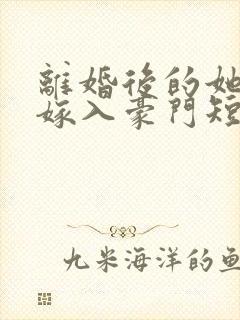 離婚後的她
嫁入豪門短
九米海洋的魚